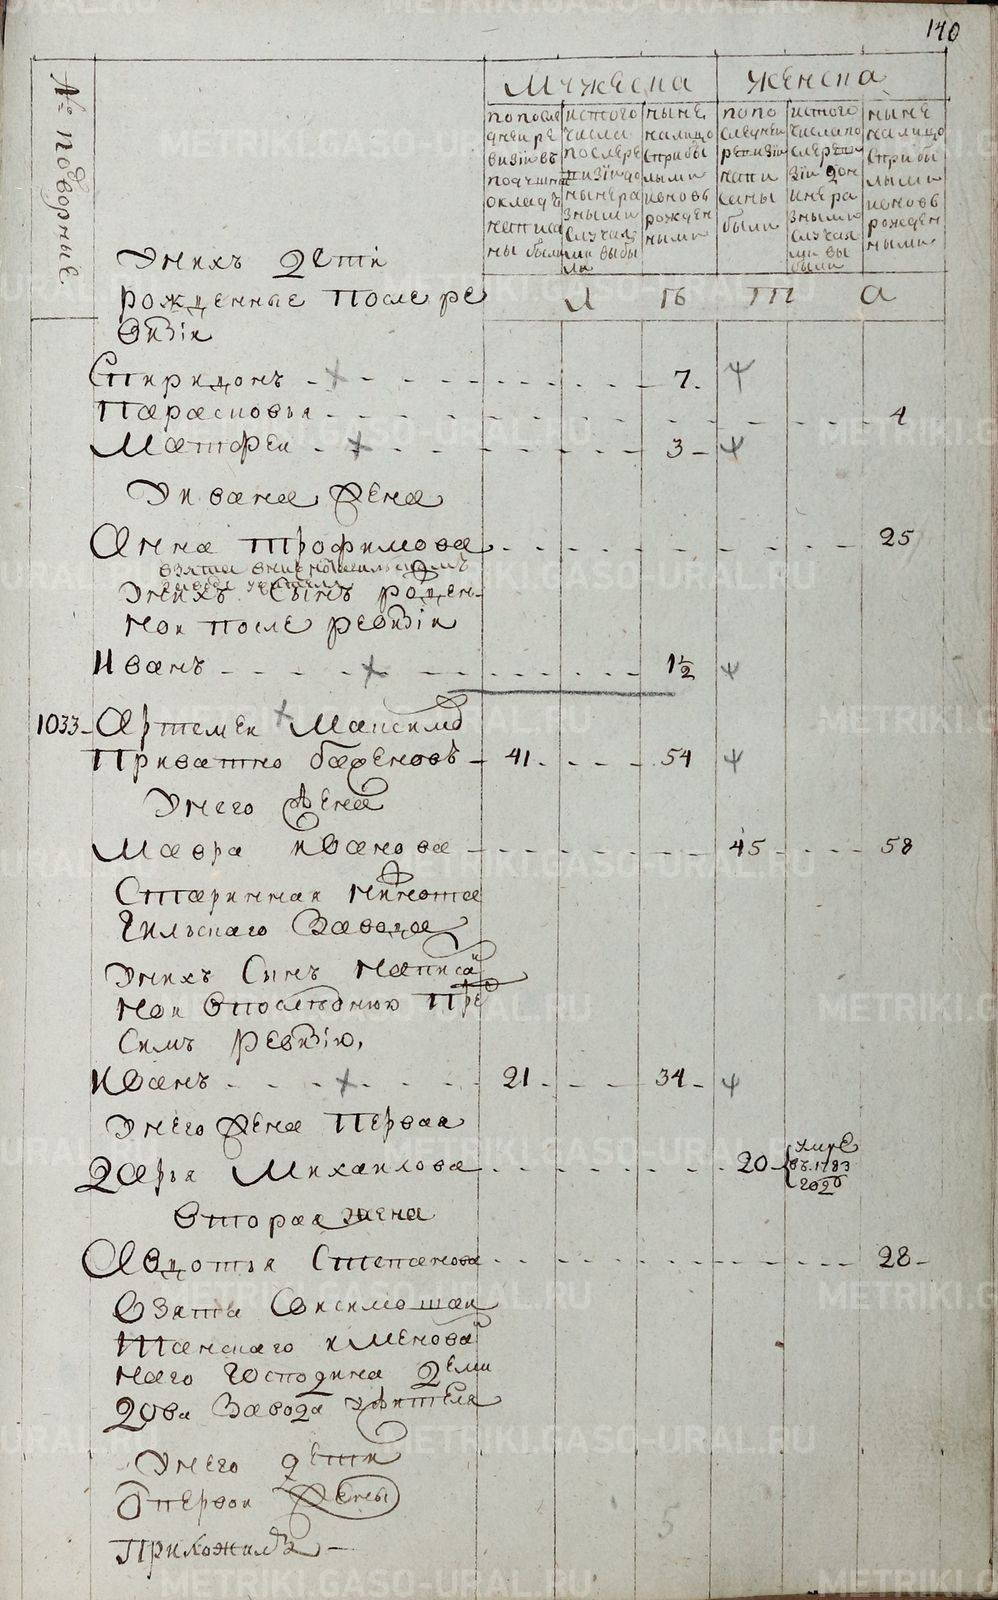 140
№ подворные
мужеска
женска
по после
дней ре
визiи въ
подушной
окладъ
написа
ны были
истого
числа
после ре
визiи до
ныне ра
зными
случая
ми выбы
ли
ныне
налицо
с прибы
лыми
и вновь
рожден
ными
по по
следней
ревизiи
напи
саны
были
истого
числа по
сле ре
зiи до н
ине ра
зными
случая
ми вы
были
ныне
налицо
с прибы
лыми
и вновь
рожден
ными
Л Ѣ Т А
У нихъ дети
рожденные после ре
визiи
Спиридонъ 7
Парасковья 4
Матфеи 3
У Ивана жена
Анна Трофимова 25
взята
У нихъ сынъ рожден
нои после ревизiи
Иванъ 1½
1033 Артемеи Максимо
Приватно баженовъ 41 54
У него жена
Мавра Иванова 45 58
Старинная нижнота
гильскаго завода
У нихъ сынъ написа
нои в последнюю пре
симъ ревизiю,
Иванъ 21 34
У него жена первая
Дарья Михаилова 20 умре
въ 1783
году
Вторая жена
Авдотья Степанова 28
взята
танскаго именова
наго господина деми
дова завода жителя
У него дети
От первои жены
Прижожилъ